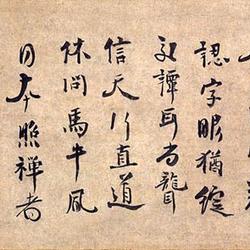 認字眼猶綻
交譚耳尚聾
信天行直道
休問馬牛風
日本照禪者